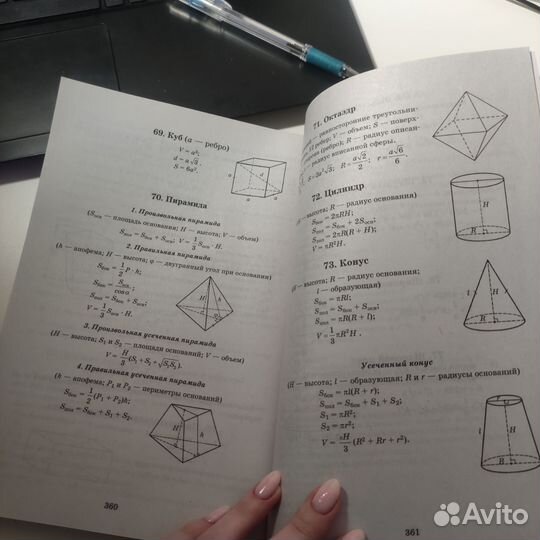 69. Куб (a — ребро)
V = a³;
d = a√3;
S = 6a².
a
d
a
a
70. Пирамида
1. Произвольная пирамида
(Sосн — площадь основания; H — высота; V — объем)
Sпол = Sбок + Sосн; V = 1/3 Sосн · H.
2. Правильная пирамида
(h — апофема; H — высота; φ — двугранный угол при основании)
Sбок = 1/2 p · h;
Sбок = Sосн/cosα;
Sпол = Sбок + Sосн;
V = 1/3 Sосн · H.
H
h
3. Произвольная усеченная пирамида
(H — высота; S₁ и S₂ — площади оснований; V — объем)
V = H/3 (S₁ + S₂ + √S₁S₂).
4. Правильная усеченная пирамида
(h — апофема; P₁ и P₂ — периметры оснований)
Sбок = 1/2 (P₁ + P₂)h;
Sпол = Sбок + S₁ + S₂.
H
h
360
71. Октаэдр
— равносторонние треугольни-
12 ребер; V — объем; S — поверх-
(ребро); R — радиус описан-
— радиус вписанной сферы.
S = 2a²√3; R = a√2/2; r = a√6/6.
72. Цилиндр
высота; R — радиус основания)
Sбок = 2πRH;
Sпол = Sбок + 2Sосн;
Sпол = 2πR(R + H);
V = πR²H.
H
R
73. Конус
высота; R — радиус основания;
l — образующая)
Sбок = πRl;
Sпол = Sбок + Sосн;
Sпол = πR(R + l);
V = 1/3 πR²H.
l
H
R
Усеченный конус
(H — высота; l — образующая; R и r — радиусы оснований)
Sбок = πl(R + r);
Sпол = Sбок + S₁ + S₂;
S₁ = πR²;
S₂ = πr²;
V = πH/3 (R² + Rr + r²).
r
l
H
R
361
Avito